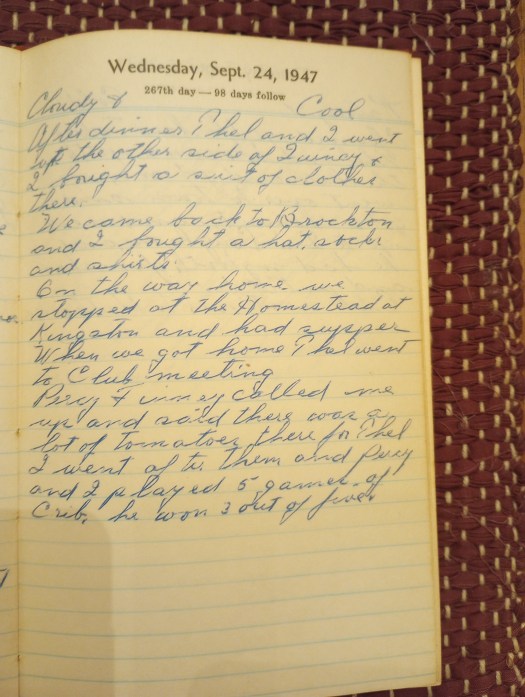 Wednesday, Sept. 24, 1947
267th day — 98 days follow
Cloudy & Cool
After dinner Thel and I went
the other side of Quincy &
I bought a suit of clothes
there.
We came back to Brockton
and I bought a hat, socks
and shirts.
On the way home we
stopped at the Homestead at
Kingston and had supper
When we got home Thel went
to Club meeting
Percy Finney called me
up and said there was a
lot of tomatoes there for Thel
I went after them and Percy
and I played 5 games of
Crib, he won 3 out of five.